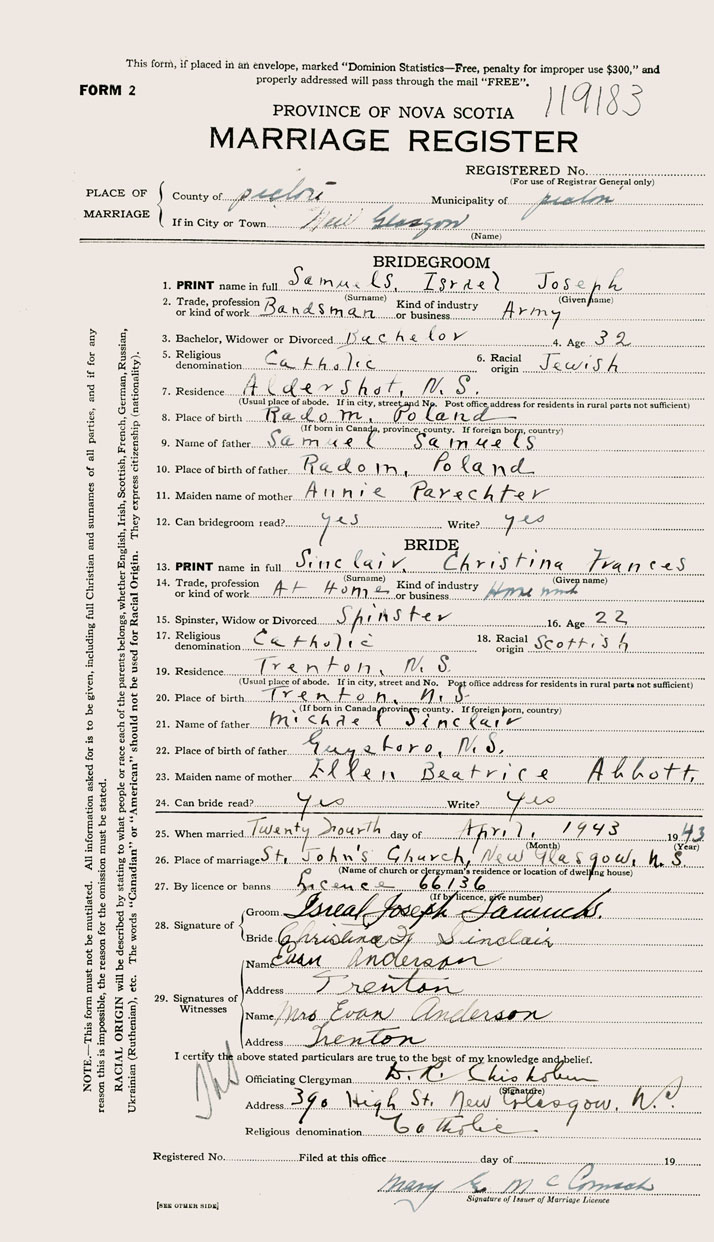 This form, if placed in an envelope, marked "Dominion Statistics—Free, penalty for improper use $300," and
properly addressed will pass through the mail "FREE".
FORM 2
119183
PROVINCE OF NOVA SCOTIA
MARRIAGE REGISTER
REGISTERED No.
(For use of Registrar General only)
PLACE OF MARRIAGE
County of pictou Municipality of pictou
If in City or Town New Glasgow
(Name)
BRIDEGROOM
1. PRINT name in full Samuels, Israel Joseph
(Surname) (Given name)
2. Trade, profession or kind of work Bandsman Kind of industry or business Army
3. Bachelor, Widower or Divorced Bachelor 4. Age 32
5. Religious denomination Catholic 6. Racial origin Jewish
7. Residence Aldershot, N.S.
(Usual place of abode. If in city, street and No. Post office address for residents in rural parts not sufficient)
8. Place of birth Radom, Poland
(If born in Canada, province, county. If foreign born, country)
9. Name of father Samuel Samuels
10. Place of birth of father Radom, Poland
11. Maiden name of mother Annie Parechter
12. Can bridegroom read? yes Write? yes
BRIDE
13. PRINT name in full Sinclair, Christina Frances
(Surname) (Given name)
14. Trade, profession or kind of work At Home Kind of industry or business
15. Spinster, Widow or Divorced Spinster 16. Age 22
17. Religious denomination Catholic 18. Racial origin Scottish
19. Residence Trenton, N.S.
(Usual place of abode. If in city, street and No. Post office address for residents in rural parts not sufficient)
20. Place of birth Trenton, N.S
(If born in Canada, province, county. If foreign born, country)
21. Name of father Michael Sinclair
22. Place of birth of father Guysboro, N.S.
23. Maiden name of mother Ellen Beatrice Abbott,
24. Can bride read? Yes Write? Yes
25. When married Twenty Fourth day of April, 1943 1943
(Month) (Year)
26. Place of marriage St. John's Church, New Glasgow, N.S
(Name of church or clergyman's residence or location of dwelling house)
27. By licence or banns Licence 66136
(If by licence, give number)
28. Signature of
Groom Isreal Joseph Samuels.
Bride Christina F Sinclair
29. Signatures of Witnesses
Name Evan Anderson
Address Trenton
Name Mrs Evan Anderson
Address Trenton
I certify the above stated particulars are true to the best of my knowledge and belief.
Officiating Clergyman D. R. Chisholm
(Signature)
Address 390 High St. New Glasgow, N.S.
Religious denomination Catholic
Registered No. Filed at this office day of 19
Mary E McCormack
Signature of Issuer of Marriage Licence
[SEE OTHER SIDE]
NOTE.—This form must not be mutilated. All information asked for is to be given, including full Christian and surnames of all parties, and if for any
reason this is impossible, the reason for the omission must be stated.
RACIAL ORIGIN will be described by stating to what people or race each of the parents belongs, whether English, Irish, Scottish, French, German, Russian,
Ukrainian (Ruthenian), etc. The words "Canadian" or "American" should not be used for Racial Origin. They express citizenship (nationality).